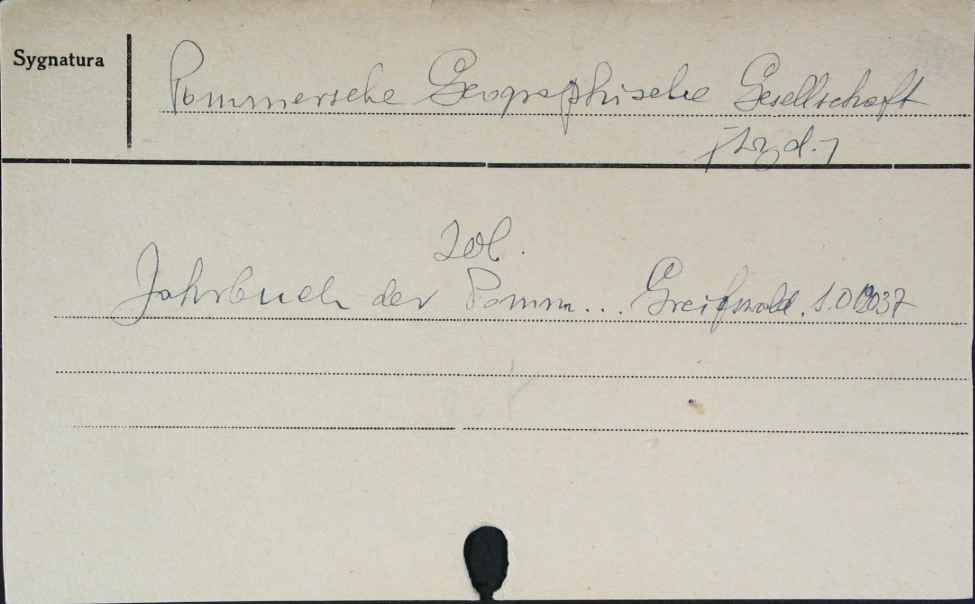 Sygnatura
Pommersche Geographische Gesellschaft
[Wyd.]
Zob.
Jahrbuch der Pomm... Greifswald.